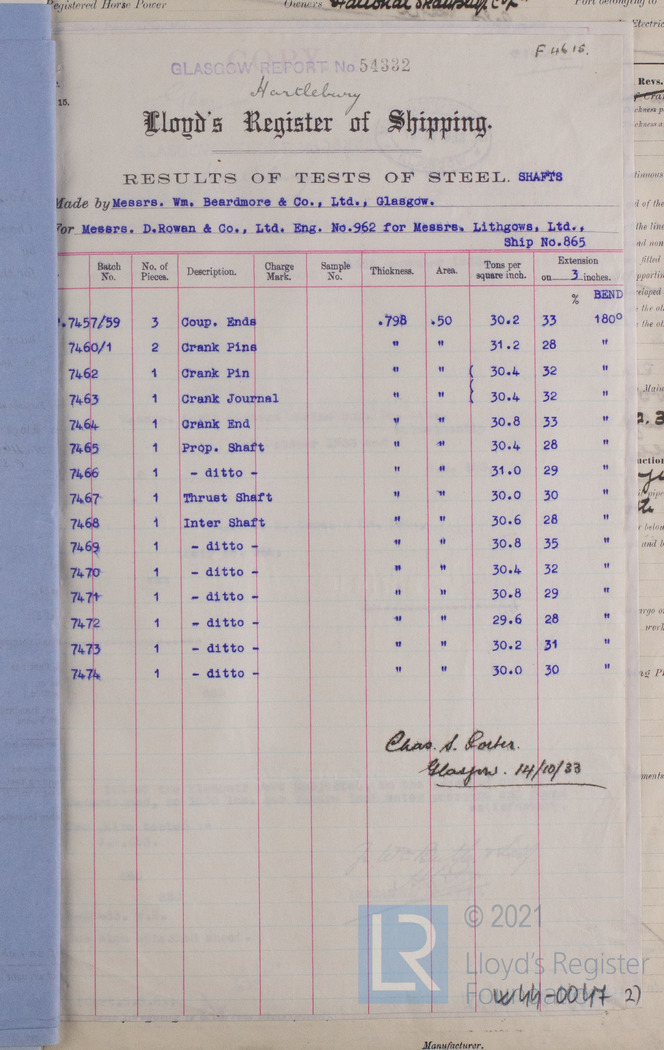 Registered Horse Power Owners National Port belonging to
Electric
F 4615.
GLASGOW REPORT No. 54332
Hartlebury
15.
Revs.
Lloyd's Register of Shipping.
RESULTS OF TESTS OF STEEL. SHAFTS
Made by Messrs. Wm. Beardmore & Co., Ltd., Glasgow.
For Messrs. D.Rowan & Co., Ltd. Eng. No.962 for Messrs. Lithgows, Ltd.,
Ship No.865
Batch No. No. of Pieces. Description. Charge Mark. Sample No. Thickness. Area. Tons per square inch. Extension on 3 inches.
% BEND
7457/59 3 Coup. Ends .798 .50 30.2 33 180°
7460/1 2 Crank Pins " " 31.2 28 "
7462 1 Crank Pin " " { 30.4 32 "
7463 1 Crank Journal " " { 30.4 32 "
7464 1 Crank End " " 30.8 33 "
7465 1 Prop. Shaft " " 30.4 28 "
7466 1 - ditto - " " 31.0 29 "
7467 1 Thrust Shaft " " 30.0 30 "
7468 1 Inter Shaft " " 30.6 28 "
7469 1 - ditto - " " 30.8 35 "
7470 1 - ditto - " " 30.4 32 "
7471 1 - ditto - " " 30.8 29 "
7472 1 - ditto - " " 29.6 28 "
7473 1 - ditto - " " 30.2 31 "
7474 1 - ditto - " " 30.0 30 "
Chas. S. Porter.
Glasgow. 14/10/33
LR © 2021
Lloyd's Register
Foundation
W44-0047 2)
Manufacturer.